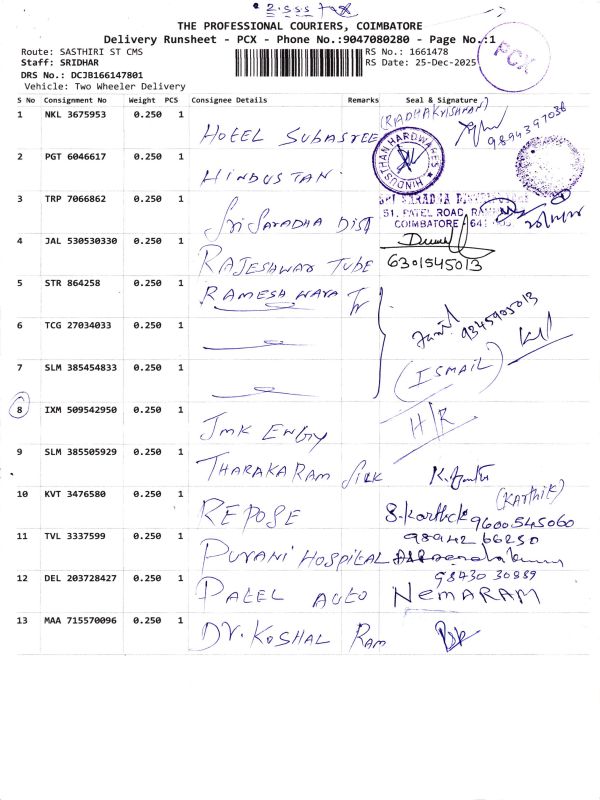 THE PROFESSIONAL COURIERS, COIMBATORE
Delivery Runsheet - PCX - Phone No.:9047080280 - Page No.:1
Route: SASTHIRI ST CMS RS No.: 1661478
Staff: SRIDHAR RS Date: 25-Dec-2025
DRS No.: DCJB166147801
Vehicle: Two Wheeler Delivery
PCX
S No Consignment No Weight PCS Consignee Details Remarks Seal & Signature
1 NKL 3675953 0.250 1 HOTEL SUBASREE (RADHAKRISHNAN) 9894397038
2 PGT 6046617 0.250 1 HINDUSTAN HINDUSTHAN HARDWARES
3 TRP 7066862 0.250 1 Sri SARADHA DIST
51, PATEL ROAD,
COIMBATORE 641
4 JAL 530530330 0.250 1 RAJESHWAR TUBE 6301545013
5 STR 864258 0.250 1 RAMESHWARA Tr
6 TCG 27034033 0.250 1 9345905013
7 SLM 385454833 0.250 1 (ISMAIL)
8 IXM 509542950 0.250 1 JMK ENGY H/R
9 SLM 385505929 0.250 1 THARAKARAM SILK
10 KVT 3476580 0.250 1 REPOSE S.Karthick (Karthik) 9600545060
11 TVL 3337599 0.250 1 PURANI HOSPITAL 98942 66230
12 DEL 203728427 0.250 1 PATEL AUTO NEMARAM 98430 30889
13 MAA 715570096 0.250 1 Dr. KOSHAL RAM